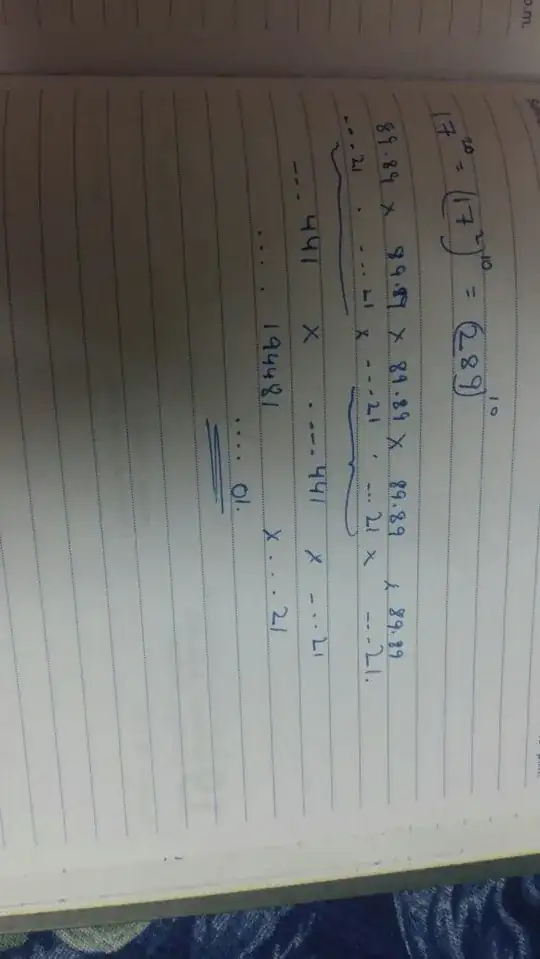 17²⁰ = (17²)¹⁰ = (289)¹⁰
89.89 × 89.89 × 89.89 × 89.89 × 89.89
....21 . ....21 × ....21 . ...21 × ...21.
---441 × .---441 × -...21
..... 194481 × ....21
.....01.